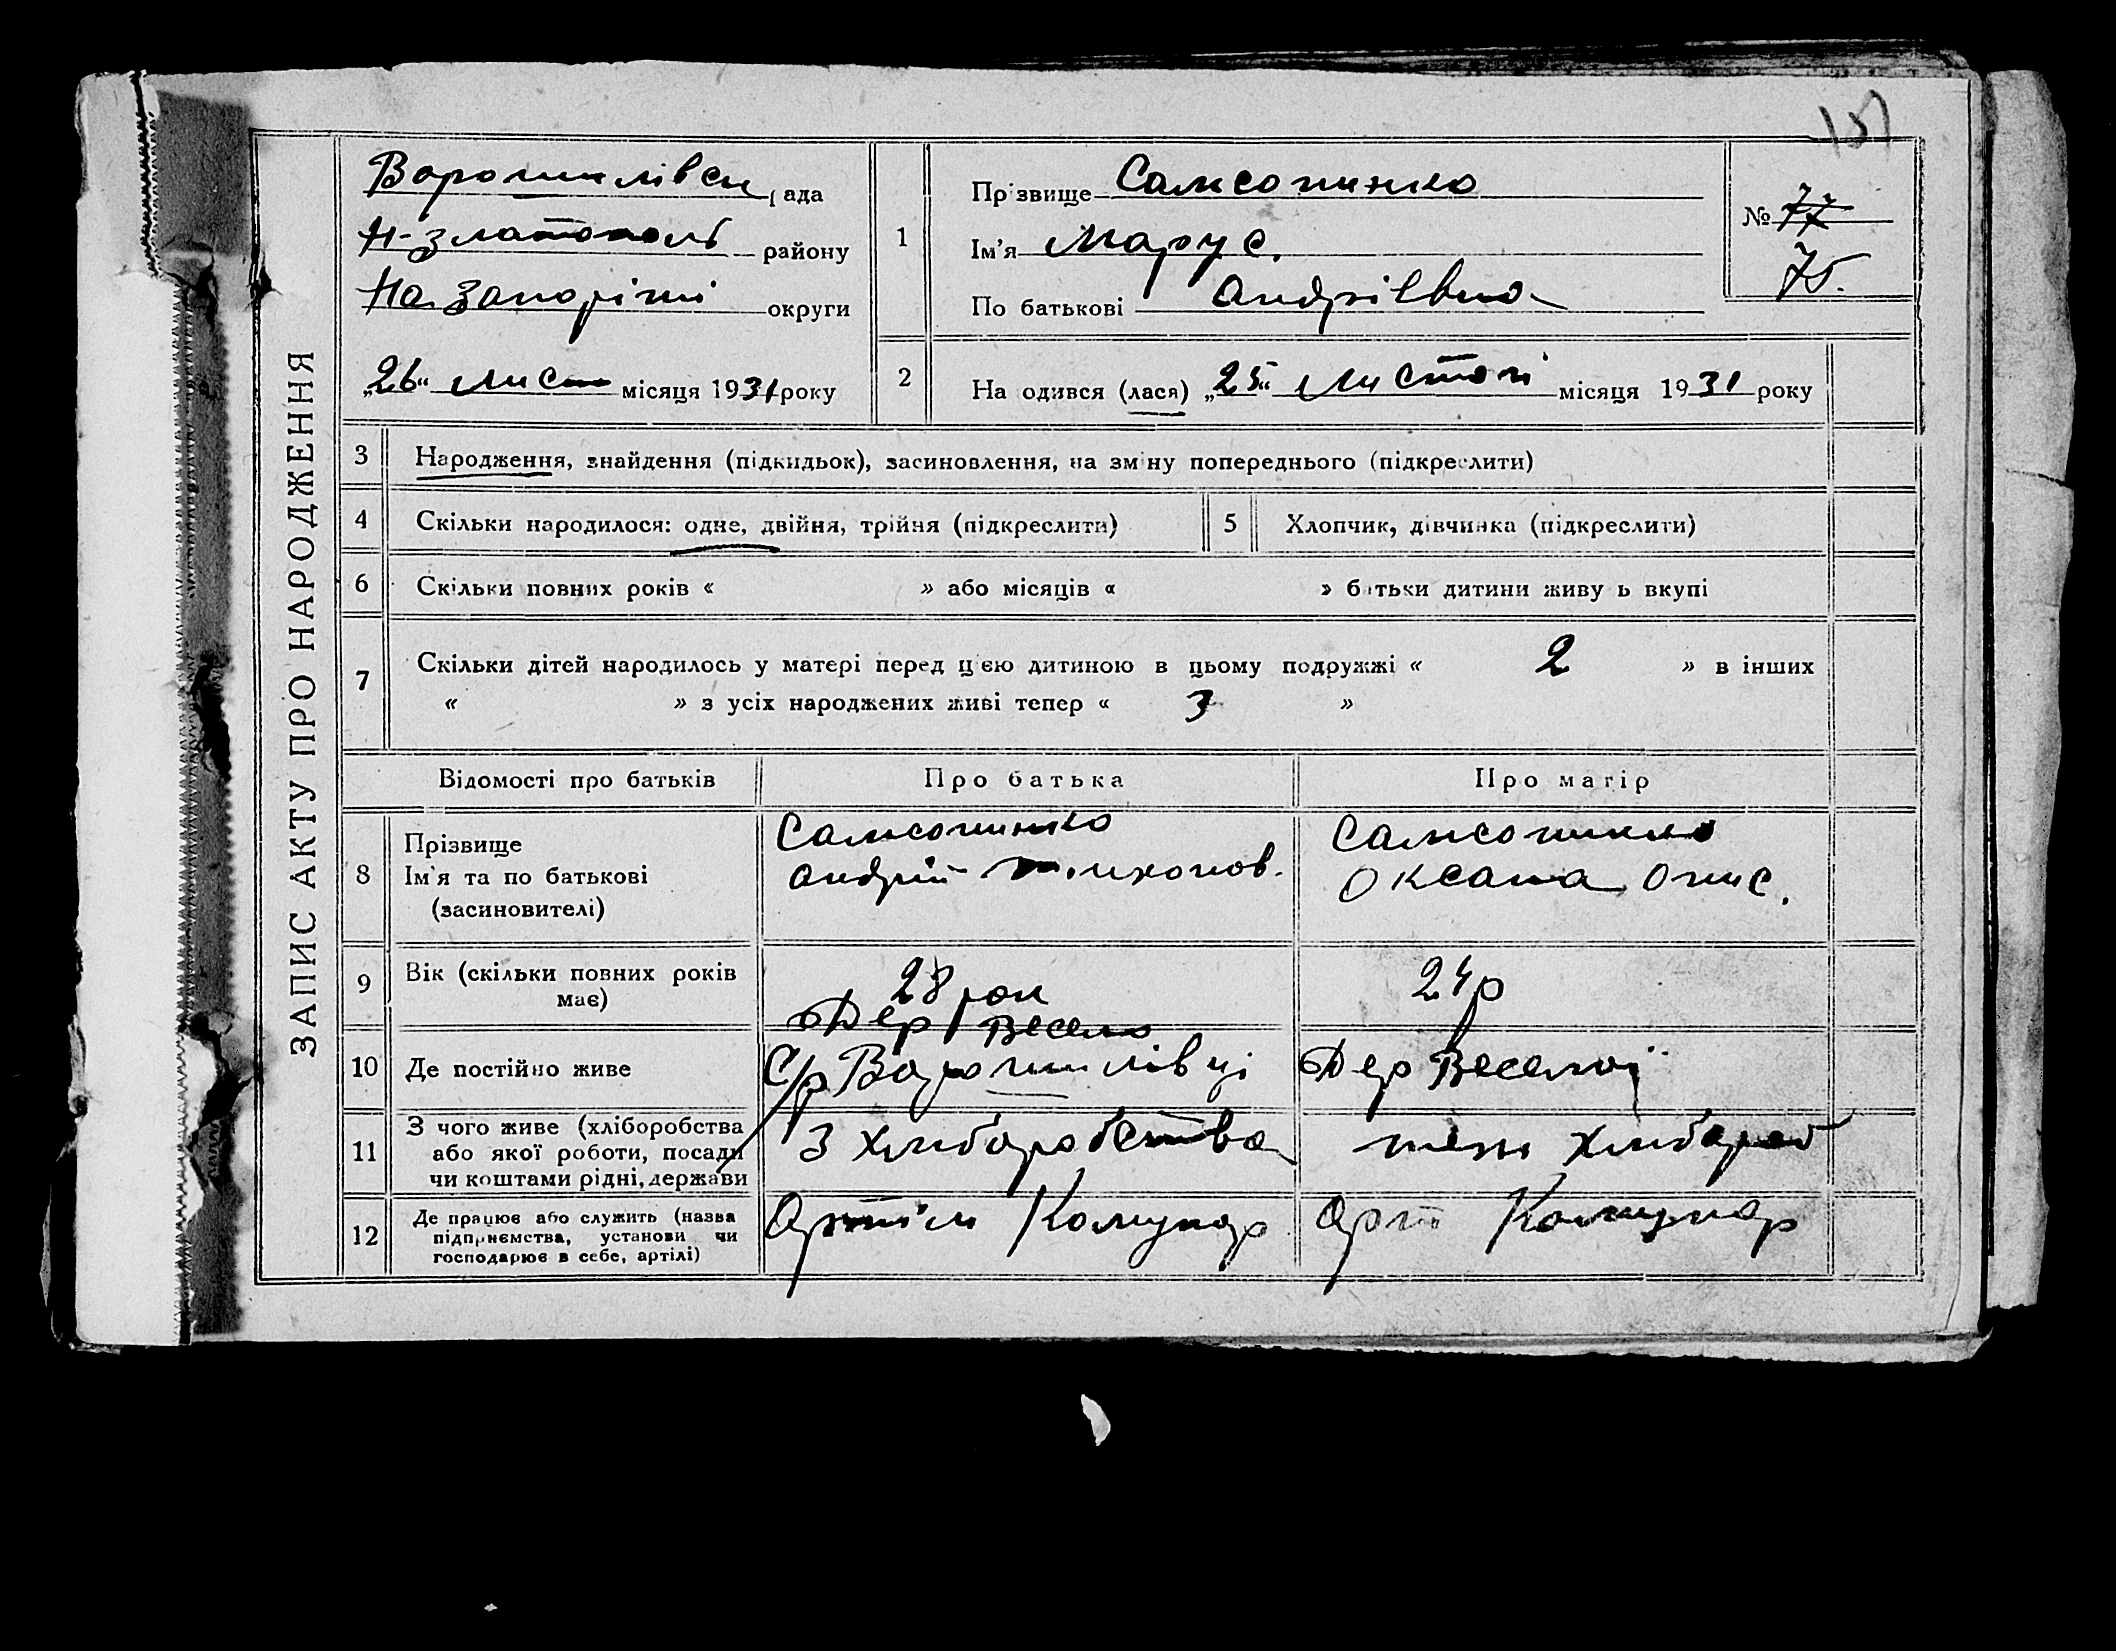 151
ЗАПИС АКТУ ПРО НАРОДЖЕННЯ
Ворошилівськ рада
Н-Златополь району
На Запоріжі округи
„26“ Лист місяця 1931 року
1
Прізвище Самсопинко
Ім'я Марус.
По батькові Андріївна
№ 77
75.
2
На одився (лася) „25“ Листопі місяця 1931 року
3 Народження, знайдення (підкидьок), засиновлення, на зміну попереднього (підкреслити)
4 Скільки народилося: одне, двійня, трійня (підкреслити)
5 Хлопчик, дівчинка (підкреслити)
6 Скільки повних років « » або місяців « » батьки дитини живу ь вкупі
7 Скільки дітей народилось у матері перед цією дитиною в цьому подружжі « 2 » в інших
« » з усіх народжених живі тепер « 3 »
Відомості про батьків Про батька Про матір
8 Прізвище
Ім'я та по батькові
(засиновителі)
Самсопинко
Андрій Тихонов.
Самсопинко
Оксана Онис.
9 Вік (скільки повних років
має)
28 рок
24р
10 Де постійно живе
Дер Весело
С/р Ворошилівці
Дер Веселої
11 З чого живе (хліборобства
або якої роботи, посади
чи коштами рідні, держави
З хліборобства
теж хлибороб
12 Де працює або служить (назва
підприємства, установи чи
господарює в себе, артілі)
Артіль Комунар
Арт Комунар